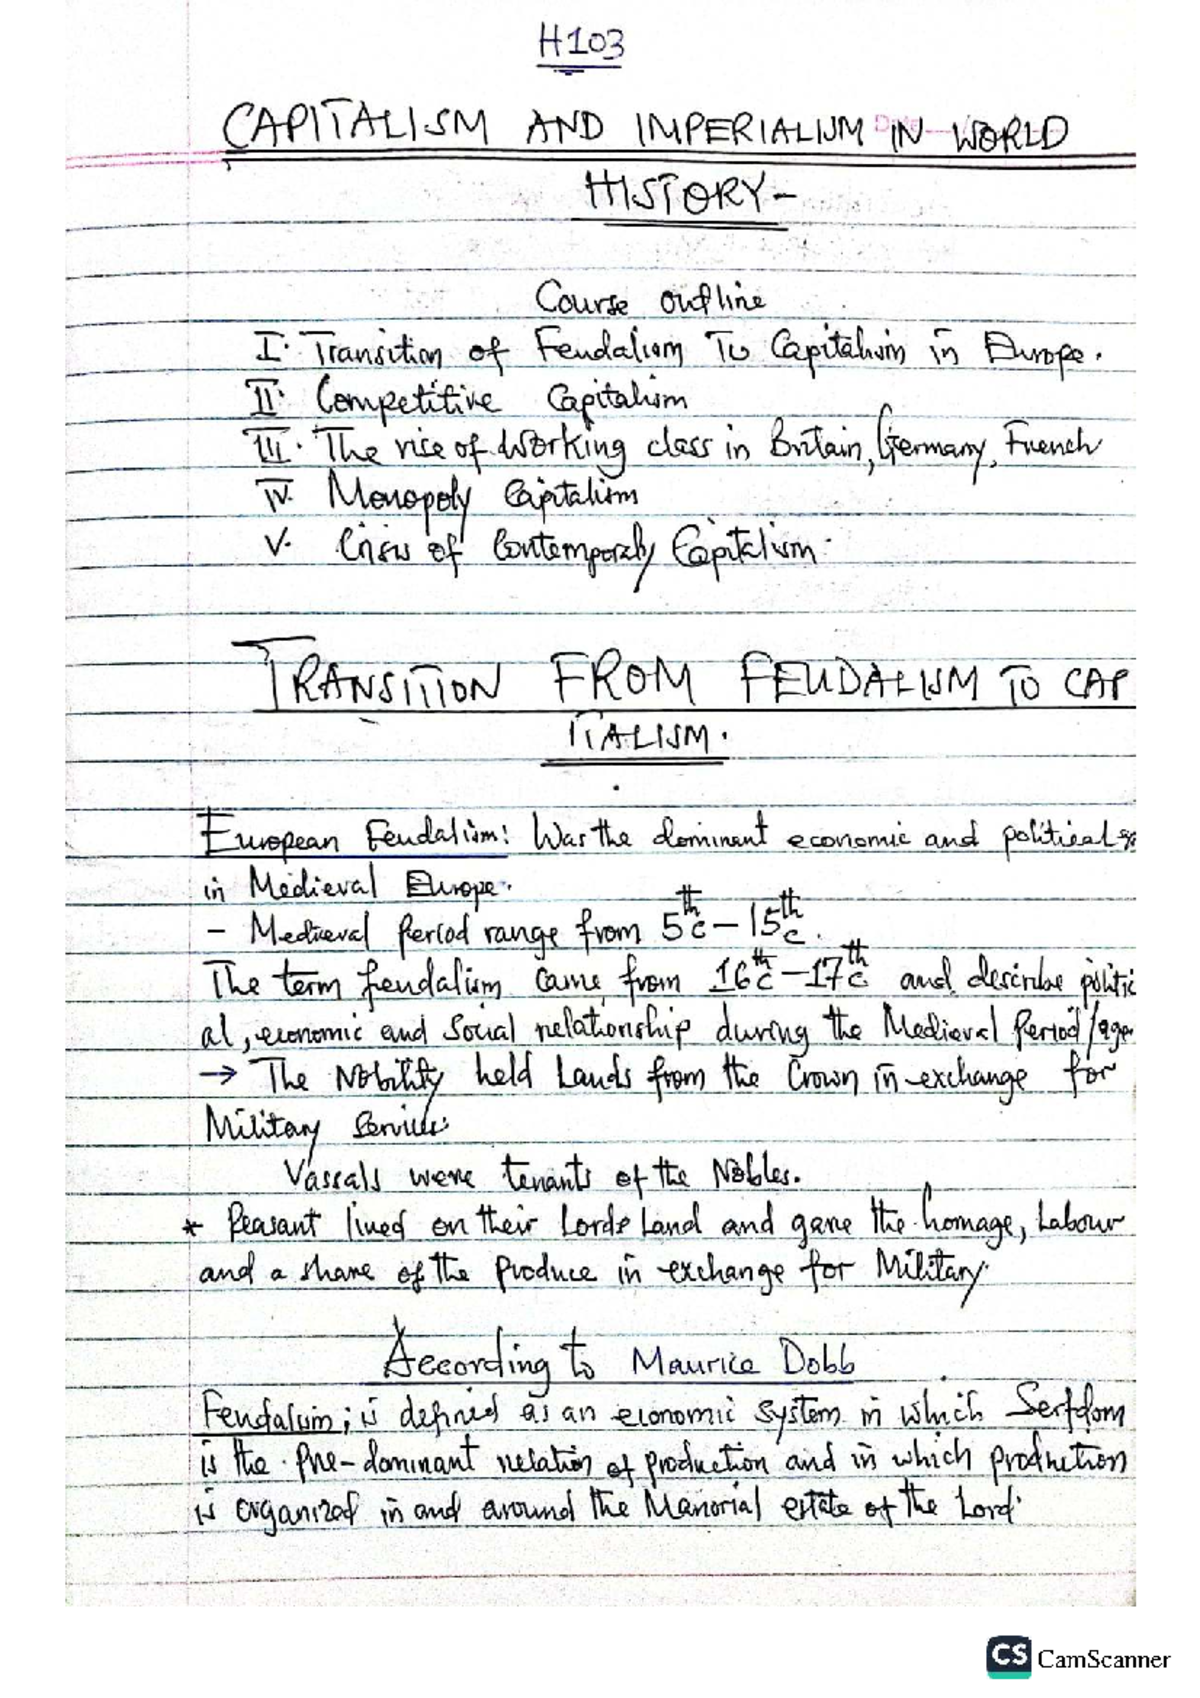 H103
CAPITALISM AND IMPERIALISM IN WORLD
HISTORY-
Course outline
I. Transition of Feudalism To Capitalism in Europe.
II. Competitive Capitalism
III. The rise of working class in Britain, Germany, French
IV. Monopoly Capitalism
V. Crisis of Contemporary Capitalism.
TRANSITION FROM FEUDALISM TO CAP
ITALISM.
European Feudalism: Was the dominant economic and political
in Medieval Europe.
- Medieval Period range from 5th c - 15th c.
The term feudalism came from 16th c - 17th c and describe politic
al, economic and Social relationship during the Medieval Period/age
→ The Nobility held Lands from the Crown in exchange for
Military Service.
Vassals were tenants of the Nobles.
* Peasant lived on their Lords Land and gave the homage, Labour
and a share of the Produce in exchange for Military.
According to Maurice Dobb
Feudalism; is defined as an economic system in which Serfdom
is the Pre-dominant relation of production and in which production
is organized in and around the Manorial estate of the Lord.
CS CamScanner